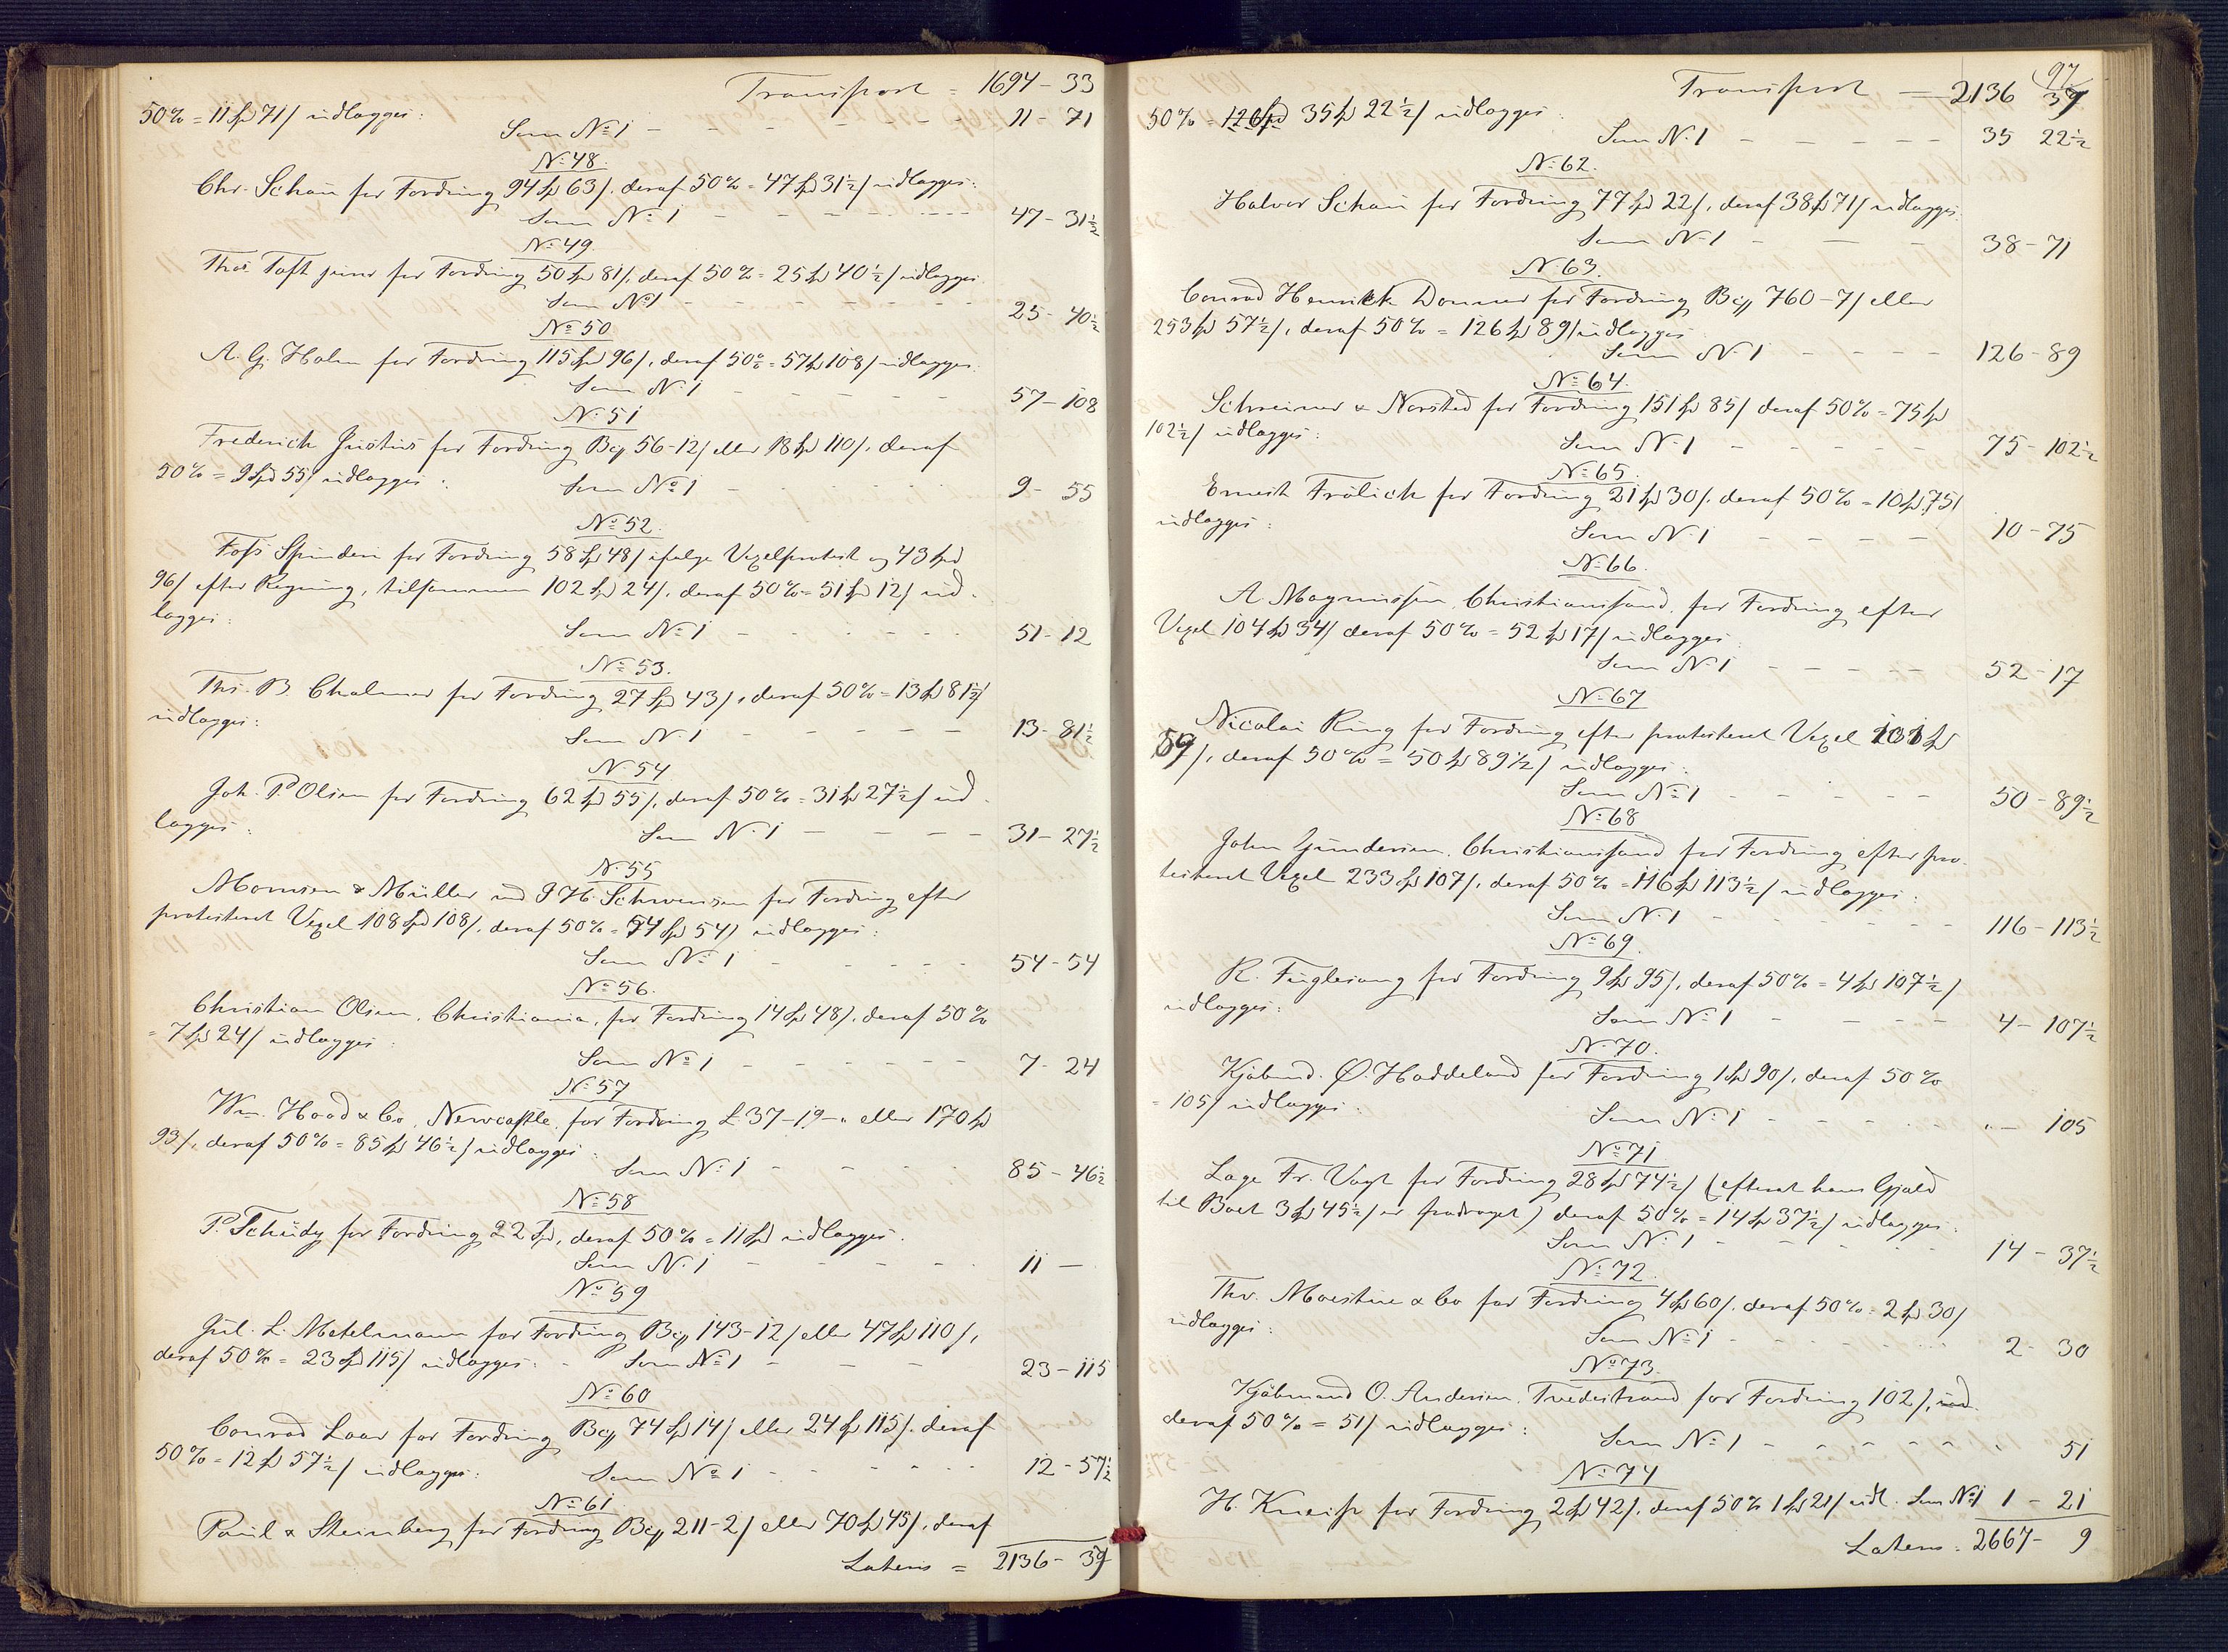 Transport = 1694 - 33
50% = 11 Spd 71/ udlægges:
Som No 1 - - - - 11 - 71
No 48.
Chr. Schou for Fordring 94 Spd 63/. deraf 50% = 47 Spd 31½/ udlægges:
Som No 1 - - - - 47 - 31½
No 49.
Ths. Toft junr for Fordring 50 Spd 81/, deraf 50% = 25 Spd 40½/ udlægges
Som No 1 - - - - 25 - 40½
No 50
A. G. Holm for Fordring 115 Spd 96/, deraf 50% = 57 Spd 108/ udlægges:
Som No 1 - - - - 57 - 108
No 51
Frederich Justus for Fordring Bcµ 56-12/ eller 18 Spd 110/, deraf
50% = 9 Spd 55/ udlægges:
Som No 1 - - - - 9 - 55
No 52.
Foss Spinderi for Fordring 58 Spd 48/ ifølge Vexelprotest og 43 Spd
96/ efter Regning, tilsammen 102 Spd 24/, deraf 50% = 51 Spd 12/ ud-
lægges:
Som No 1 - - - - 51 - 12
No 53.
Ths. B. Chalmer for Fordring 27 Spd 43/, deraf 50% = 13 Spd 81½/
udlægges:
Som No 1 - - - - 13 - 81½
No 54
Joh. P. Olsen for Fordring 62 Spd 55/, deraf 50% = 31 Spd 27½/ ud-
lægges:
Som No 1 - - - - 31 - 27½
No 55
Momsen & Müller ved J H. Schwensen for Fordring efter
protesteret Vexel 108 Spd 108/, deraf 50% = 54 Spd 54/ udlægges:
Som No 1 - - - - 54 - 54
No 56.
Christian Olsen, Christiania, for Fordring 14 Spd 48/, deraf 50%
= 7 Spd 24/ udlægges:
Som No 1 - - - - 7 - 24
No 57
Wm. Hood & Co, Newcastle, for Fordring £ 37-19-" eller 170 Spd
93/, deraf 50% = 85 Spd 46½/ udlægges:
Som No 1 - - - - 85 - 46½
No 58
P. Scheidy for Fordring 22 Spd, deraf 50% = 11 Spd udlægges:
Som No 1 - - - - 11 -
No 59
Jul. L. Metelmann for Fordring Bcµ 143-12/ eller 47 Spd 110/,
deraf 50% = 23 Spd 115/ udlægges: - Som No 1 - - - 23 - 115
No 60
Conrad Laar for Fordring Bcµ 74 Spd 14/ eller 24 Spd 115/. deraf
50% = 12 Spd 57½/ udlægges: Som No 1 - - - - 12 - 57½
No 61
Paul & Steinberg for Fordring Bcµ 211-2/ eller 70 Spd 45/, deraf
Latens = 2136 - 39
97
Transport = 2136 39
50% = 126 Spd 35 Spd 22½/ udlægges:
Som No 1 - - - - 35 22½
No 62.
Halvor Schou for Fordring 77 Spd 22/, deraf 38 Spd 71/ udlægges:
Som No 1 - - - 38 - 71
No 63.
Conrad Henrich Donner for Fordring Bcµ 760-7/ eller
253 Spd 57½/, deraf 50% = 126 Spd 89/ udlægges
Som No 1 - - - - 126 - 89
No 64.
Schreiner & Norsted for Fordring 151 Spd 85/ deraf 50% = 75 Spd
102½/ udlægges:
Som No 1 - - - - 75 - 102½
No 65.
Ernest Frölich for Fordring 21 Spd 30/, deraf 50% = 10 Spd 75/
udlægges:
Som No 1 - - - - 10 - 75
No 66.
A Magnussen, Christianssand, for Fordring efter
Vexel 104 Spd 34/ deraf 50% = 52 Spd 17/ udlægges
Som No 1 - - - - 52 - 17
No 67
Nicolai Ring for Fordring efter protesteret Vexel 101 Spd
59/, deraf 50% = 50 Spd 89½/ udlægges:
Som No 1 - - - - 50 - 89½
No 68
John Gundersen, Christianssand for Fordring efter pro-
testeret Vexel 233 Spd 107/, deraf 50% = 116 Spd 113½/ udlægges:
Som No 1 - - - - 116 - 113½
No 69.
R. Fuglesang for Fordring 9 Spd 95/, deraf 50% = 4 Spd 107½/
udlægges:
Som No 1 - - - - 4 - 107½
No 70.
Kjöbmd. Ø. Haddeland for Fordring 1 Spd 90/, deraf 50%
= 105/ udlægges:
Som No 1 - - - - "- 105
No 71
Lage Fr. Vogt for Fordring 28 Spd 74½/ (efterat hans Gjæld
til Boet 3 Spd 45½/ er fradraget) deraf 50% = 14 Spd 37½/ udlægges:
Som No 1 - - - - 14 - 37½
No 72.
Thv. Moestue & Co for Fordring 4 Spd 60/, deraf 50% = 2 Spd 30/
udlægges:
Som No 1 - - - - 2 - 30
No 73.
Kjöbmand O. Andersen, Tvedestrand for Fordring 102/,
deraf 50% = 51/ udlægges:
Som No 1 - - - - " 51
No 74
H. Kneiss for Fordring 2 Spd 42/, deraf 50% 1 Spd 21/ udl. Som No 1 1 - 21
Latens = 2667 - 9